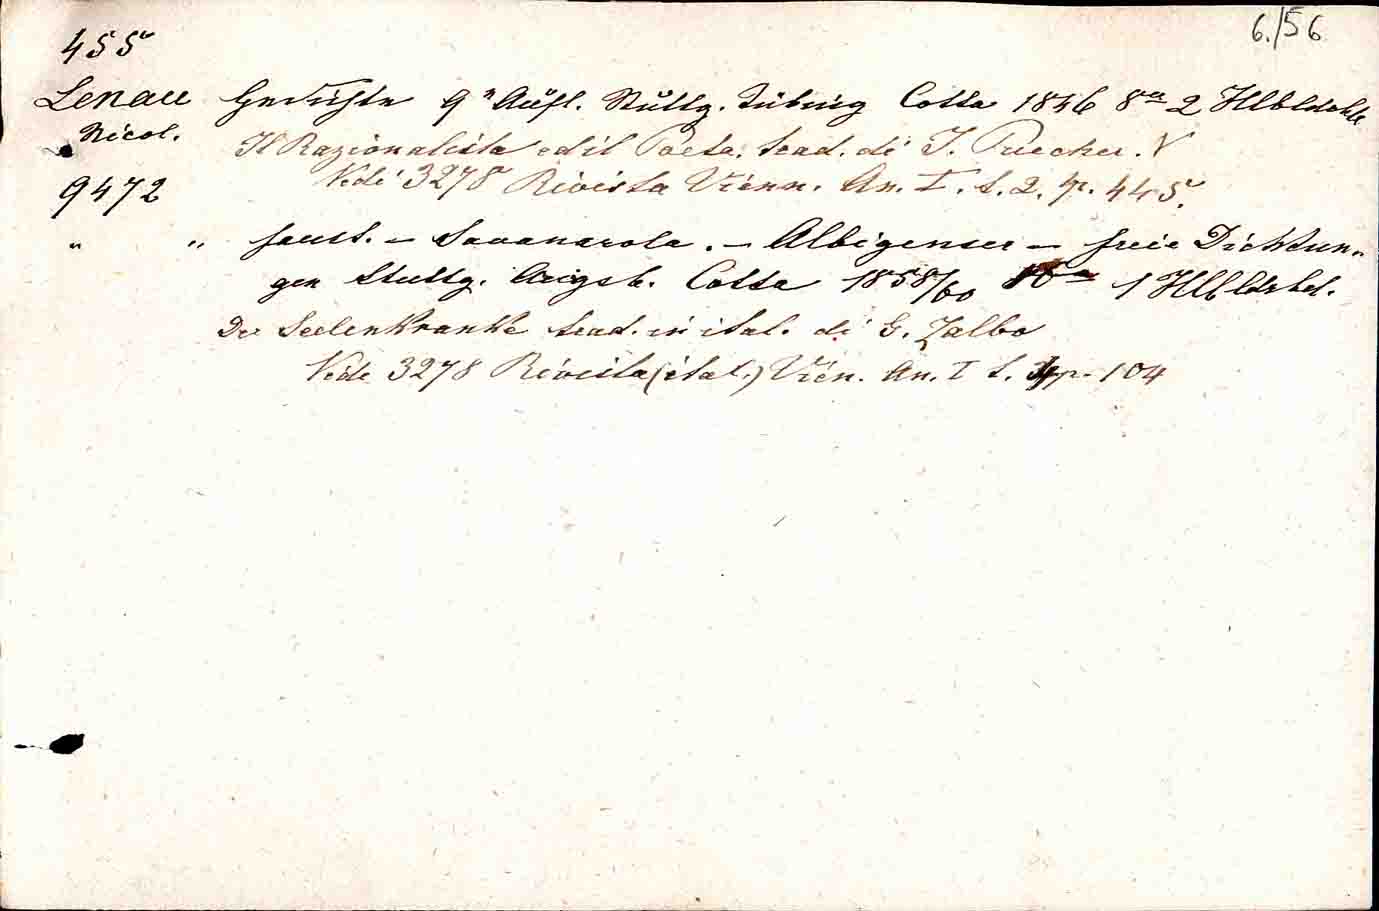 6./56
455
Lenau Gedichte 9" Aufl. Stuttg. Tübing Cotta 1846 8° 2 Hlbldrbde
Nicol.
Il Razionalista ed il Poeta. trad. di J. Puecher. V
Vedi 3278 Rivista Vienn. An. I. t. 2. p. 445.
9472
" " Faust. – Savanarola. – Albigenser – freie Dichtun-
gen Stuttg. Augsb. Cotta 1858/60 1 Hlbldrbd.
Der Seelenkranke trad. in ital. di G. Zalbo
Vide 3278 Rivista (ital.) Vien. An. I t. p. 104